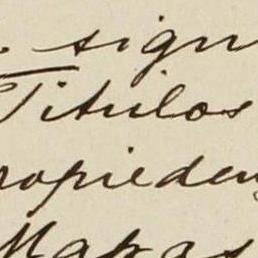 sign
Titulos
ropieden
Mapas